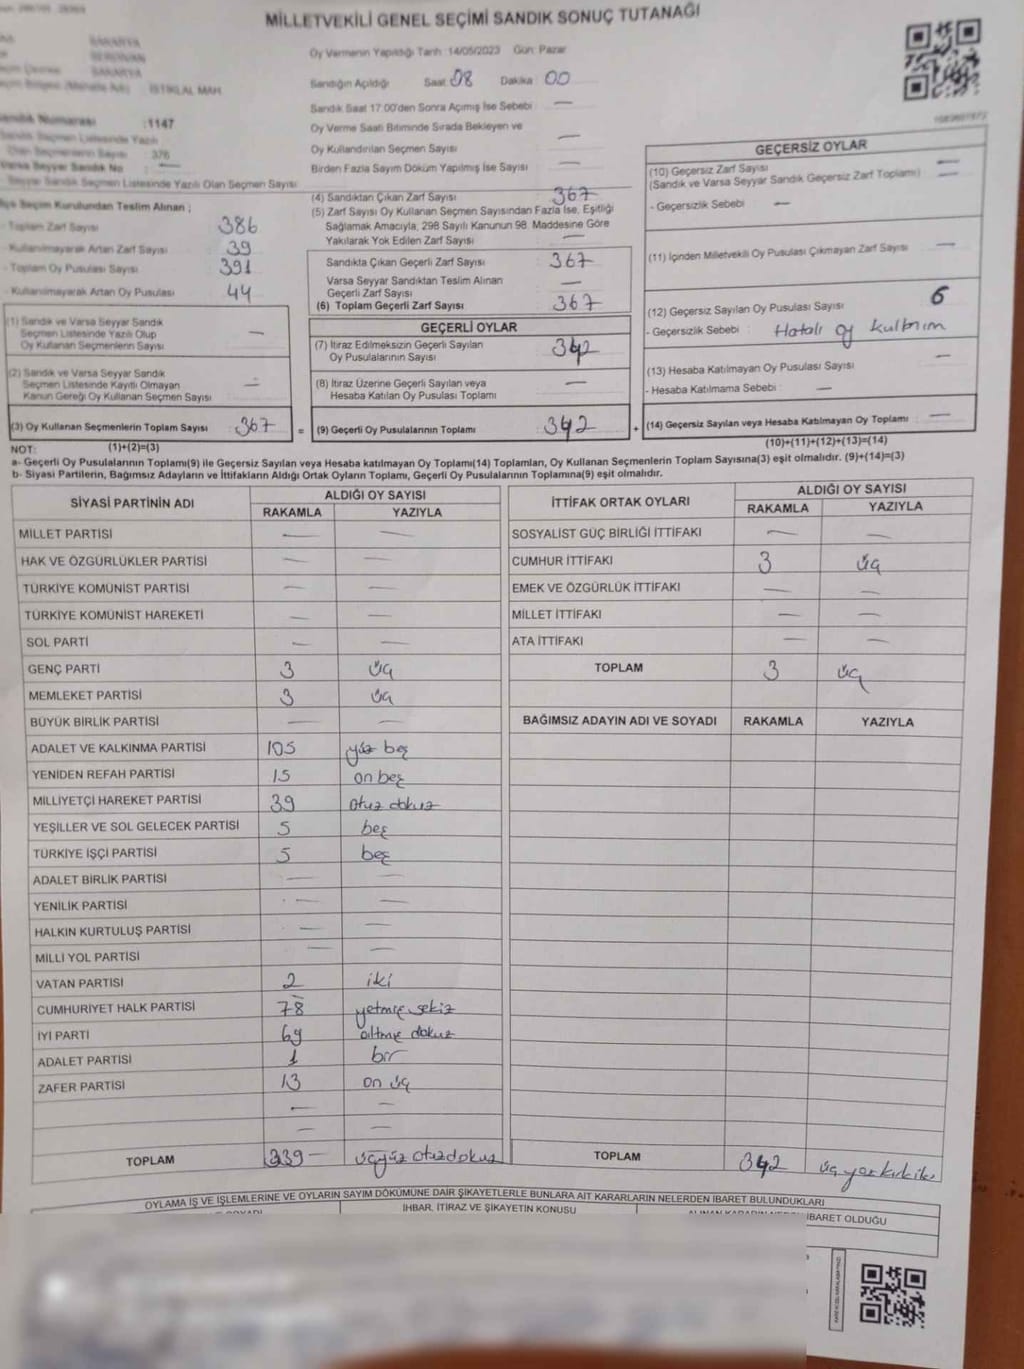 MİLLETVEKİLİ GENEL SEÇİMİ SANDIK SONUÇ TUTANAĞI
SAKARYA
SERDİVAN
SAKARYA
İSTİKLAL MAH
Sandık Numarası :1147
Sandık Seçmen Listesinde Yazılı
Olan Seçmenlerin Sayısı : 376
Varsa Seyyar Sandık No : —
Seyyar Sandık Seçmen Listesinde Yazılı Olan Seçmen Sayısı
İlçe Seçim Kurulundan Teslim Alınan ;
- Toplam Zarf Sayısı 386
- Kullanılmayarak Artan Zarf Sayısı 39
- Toplam Oy Pusulası Sayısı 391
- Kullanılmayarak Artan Oy Pusulası 44
(1) Sandık ve Varsa Seyyar Sandık
Seçmen Listesinde Yazılı Olup
Oy Kullanan Seçmenlerin Sayısı —
(2) Sandık ve Varsa Seyyar Sandık
Seçmen Listesinde Kayıtlı Olmayan
Kanun Gereği Oy Kullanan Seçmen Sayısı : —
(3) Oy Kullanan Seçmenlerin Toplam Sayısı : 367
Oy Vermenin Yapıldığı Tarih :14/05/2023 Gün: Pazar
Sandığın Açıldığı Saat 08 Dakika 00
Sandık Saat 17:00'den Sonra Açımış İse Sebebi —
Oy Verme Saati Bitiminde Sırada Bekleyen ve
Oy Kullandırılan Seçmen Sayısı —
Birden Fazla Sayım Döküm Yapılmış İse Sayısı —
(4) Sandıktan Çıkan Zarf Sayısı : 367
(5) Zarf Sayısı Oy Kullanan Seçmen Sayısından Fazla İse, Eşitliği
Sağlamak Amacıyla, 298 Sayılı Kanunun 98. Maddesine Göre
Yakılarak Yok Edilen Zarf Sayısı —
Sandıkta Çıkan Geçerli Zarf Sayısı : 367
Varsa Seyyar Sandıktan Teslim Alınan
Geçerli Zarf Sayısı —
(6) Toplam Geçerli Zarf Sayısı : 367
GEÇERLİ OYLAR
(7) İtiraz Edilmeksizin Geçerli Sayılan
Oy Pusulalarının Sayısı : 342
(8) İtiraz Üzerine Geçerli Sayılan veya
Hesaba Katılan Oy Pusulası Toplamı : —
= (9) Geçerli Oy Pusulalarının Toplamı : 342 +
GEÇERSİZ OYLAR
(10) Geçersiz Zarf Sayısı —
(Sandık ve Varsa Seyyar Sandık Geçersiz Zarf Toplamı) —
- Geçersizlik Sebebi —
(11) İçinden Milletvekili Oy Pusulası Çıkmayan Zarf Sayısı —
(12) Geçersiz Sayılan Oy Pusulası Sayısı 6
- Geçersizlik Sebebi : Hatalı oy
(13) Hesaba Katılmayan Oy Pusulası Sayısı —
- Hesaba Katılmama Sebebi : —
(14) Geçersiz Sayılan veya Hesaba Katılmayan Oy Toplamı : —
NOT: (1)+(2)=(3) (10)+(11)+(12)+(13)=(14)
a- Geçerli Oy Pusulalarının Toplamı(9) ile Geçersiz Sayılan veya Hesaba katılmayan Oy Toplamı(14) Toplamları, Oy Kullanan Seçmenlerin Toplam Sayısına(3) eşit olmalıdır. (9)+(14)=(3)
b- Siyasi Partilerin, Bağımsız Adayların ve İttifakların Aldığı Ortak Oyların Toplamı, Geçerli Oy Pusulalarının Toplamına(9) eşit olmalıdır.
SİYASİ PARTİNİN ADI ALDIĞI OY SAYISI
RAKAMLA YAZIYLA
MİLLET PARTİSİ — —
HAK VE ÖZGÜRLÜKLER PARTİSİ — —
TÜRKİYE KOMÜNİST PARTİSİ — —
TÜRKİYE KOMÜNİST HAREKETİ — —
SOL PARTİ — —
GENÇ PARTİ 3 üç
MEMLEKET PARTİSİ 3 üç
BÜYÜK BİRLİK PARTİSİ — —
ADALET VE KALKINMA PARTİSİ 105 yüz beş
YENİDEN REFAH PARTİSİ 15 on beş
MİLLİYETÇİ HAREKET PARTİSİ 39 otuz dokuz
YEŞİLLER VE SOL GELECEK PARTİSİ 5 beş
TÜRKİYE İŞÇİ PARTİSİ 5 beş
ADALET BİRLİK PARTİSİ — —
YENİLİK PARTİSİ — —
HALKIN KURTULUŞ PARTİSİ — —
MİLLİ YOL PARTİSİ — —
VATAN PARTİSİ 2 iki
CUMHURİYET HALK PARTİSİ 78 yetmiş sekiz
İYİ PARTİ 69 altmış dokuz
ADALET PARTİSİ 1 bir
ZAFER PARTİSİ 13 on üç
— —
— —
TOPLAM 339 üçyüz otuzdokuz
İTTİFAK ORTAK OYLARI ALDIĞI OY SAYISI
RAKAMLA YAZIYLA
SOSYALİST GÜÇ BİRLİĞİ İTTİFAKI — —
CUMHUR İTTİFAKI 3 üç
EMEK VE ÖZGÜRLÜK İTTİFAKI — —
MİLLET İTTİFAKI — —
ATA İTTİFAKI — —
TOPLAM 3 üç
BAĞIMSIZ ADAYIN ADI VE SOYADI RAKAMLA YAZIYLA
TOPLAM 342 üç yüz kırk iki
OYLAMA İŞ VE İŞLEMLERİNE VE OYLARIN SAYIM DÖKÜMÜNE DAİR ŞİKAYETLERLE BUNLARA AİT KARARLARIN NELERDEN İBARET BULUNDUKLARI
İHBAR, İTİRAZ VE ŞİKAYETİN KONUSU
ALINAN KARARIN NEDEN İBARET OLDUĞU